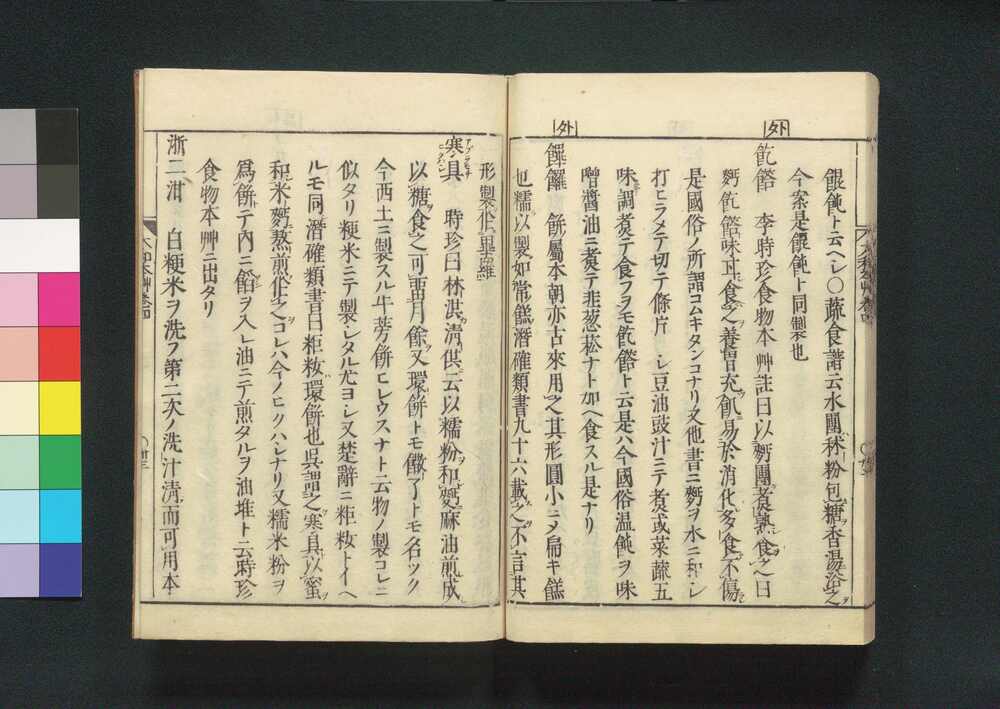 餛飩ト云ヘシ〇蔬食譜云水團秫粉包糖香湯浴之
今案是餛飩ト同製也
外
飥𩜶 李時珍食物本艸註曰以麪團煮熟食之曰
麪飥𩜶味平食之養胃充飢易於消化多食不傷
是國俗ノ所謂コムキタンコナリ又他書ニ麪ヲ水ニ和シ
打ヒラメテ切テ條片シ豆油豉汁ニテ煮或菜蔬五
味調煮テ食フヲモ飥𩜶ト云是ハ今國俗温飩ヲ味
噌醬油ニ煮テ韭葱菘ナト加ヘ食スル是ナリ
外
饆饠 餅屬本朝亦古來用之其形圓小ニメ扁キ餻
也糯以製如常餻潛確類書九十六載之不言其
形製作畢羅
寒具 時珍曰林洪清供云以糯粉和麪麻油煎成
以糖食之可畱月餘又環餅トモ饊子トモ名ツク
今西土ニ製スル牛蒡餅ヒレウスナト云物ノ製コレニ
似タリ粳米ニテ製シタル尤ヨシ又楚辭ニ粔籹トイヘ
ルモ同潛確類書曰粔籹環餅也呉謂之寒具以蜜
和米麪熬煎作之コレハ今ノヒクハシナリ又糯米粉ヲ
爲餅テ内ニ餡ヲ入レ油ニテ煎タルヲ油堆ト云時珍
食物本艸ニ出タリ
浙二泔 白粳米ヲ洗フ第二次ノ洗汁清而可用本